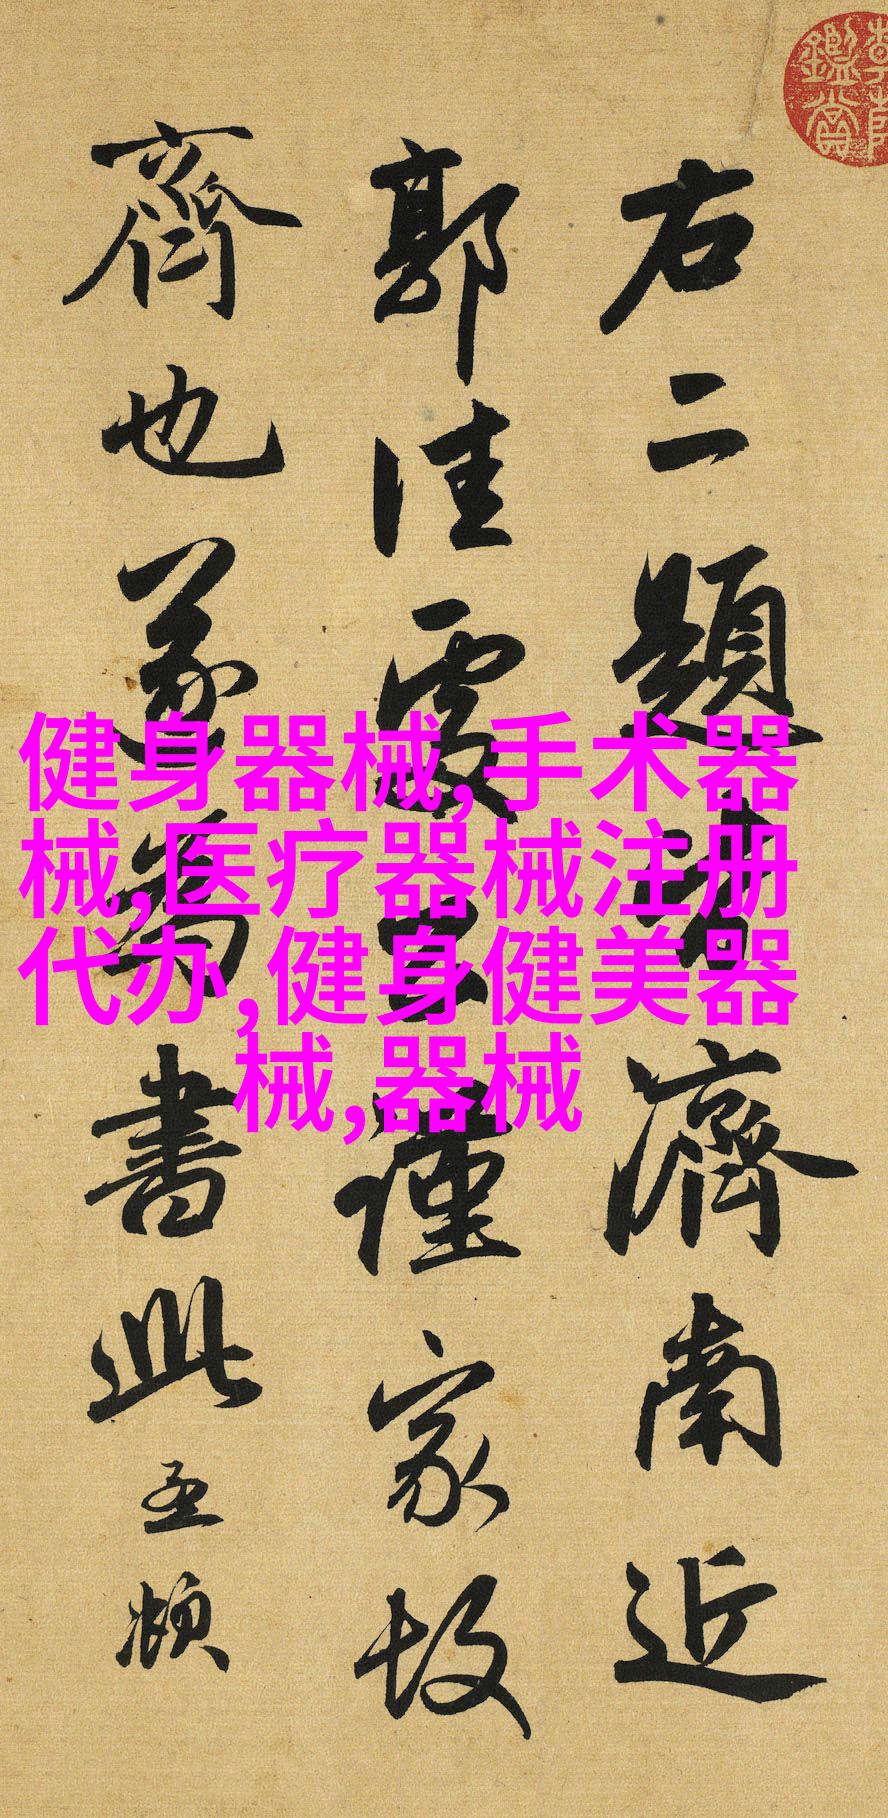 右二題皆濟南近
郭佳處公謹家故
齊也遂為書此孟頫
健身器械,手术器
械,医疗器械注册
代办,健身健美器
械,器械